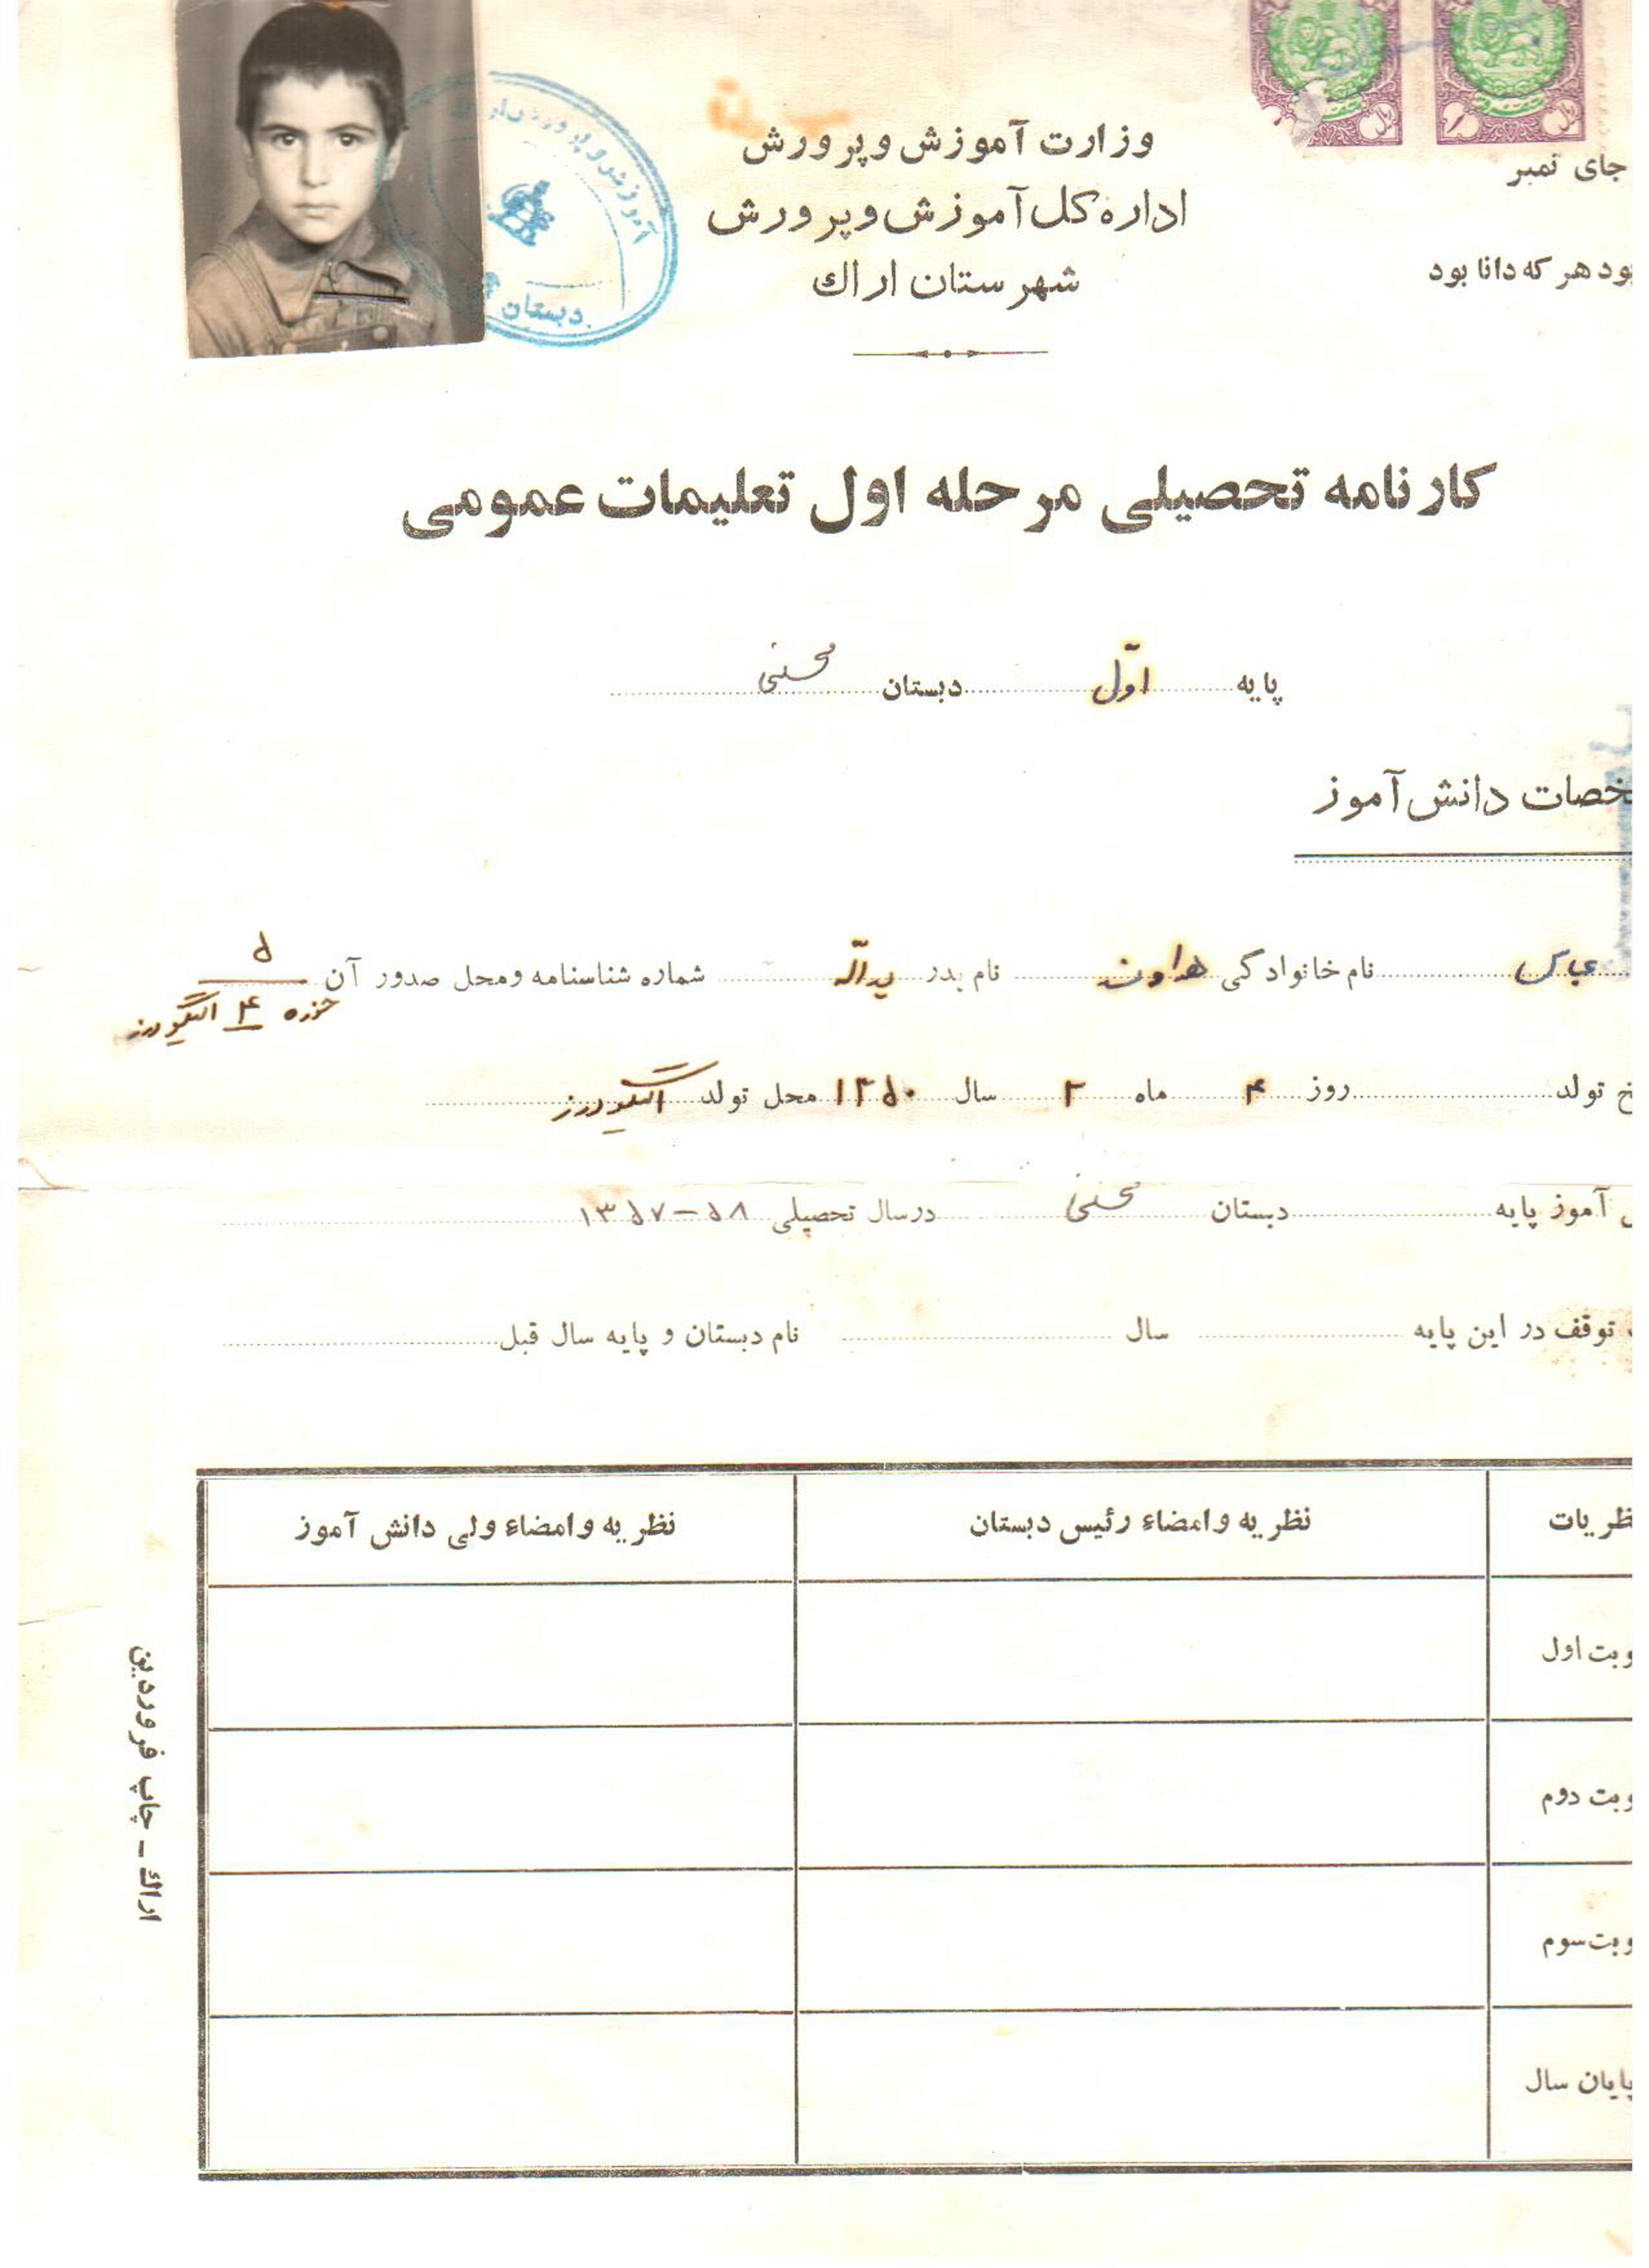 جای تمبر
وزارت آموزش و پرورش
اداره کل آموزش و پرورش
شهرستان اراک
بود هر که دانا بود
آموزش و پرورش
دبستان
کارنامه تحصیلی مرحله اول تعلیمات عمومی
پایه اوّل دبستان محسنی
خصات دانش آموز
عباس نام خانوادگی هداوند نام پدر یداله شماره شناسنامه و محل صدور آن ۵
حوزه ۴ الیگودرز
خ تولد روز ۴ ماه ۲ سال ۱۳۵۰ محل تولد الیگودرز
آموز پایه دبستان محسنی در سال تحصیلی ۵۸-۱۳۵۷
توقف در این پایه سال نام دبستان و پایه سال قبل
ظریات نظریه و امضاء رئیس دبستان نظریه و امضاء ولی دانش آموز
وبت اول
وبت دوم
وبت سوم
پایان سال
اراک - چاپ فروردین